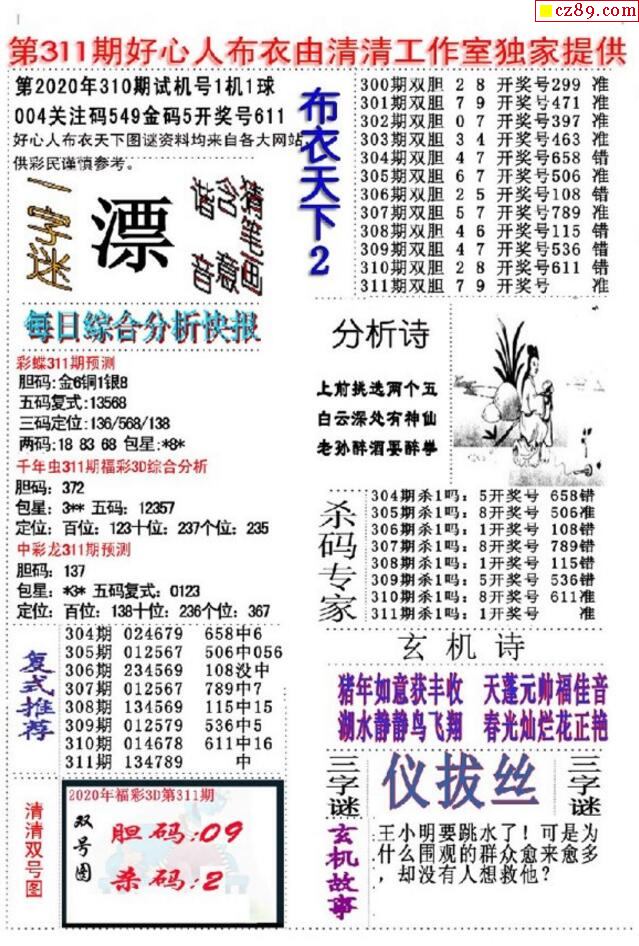 cz89.com
第311期好心人布衣由清清工作室独家提供
第2020年310期试机号1机1球
004关注码549金码5开奖号611
好心人布衣天下图谜资料均来自各大网站,
供彩民谨慎参考。
一字迷
漂
猜笔画
含意
谐音
每日综合分析快报
彩蝶311期预测
胆码:金6铜1银8
五码复式:13568
三码定位:136/568/138
两码:18 83 68 包星:*8*
千年虫311期福彩3D综合分析
胆码：372
包星：3** 五码：12357
定位：百位：123十位：237个位：235
中彩龙311期预测
胆码：137
包星：*3* 五码复式：0123
定位：百位：138十位：236个位：367
复式推荐
304期 024679 658中6
305期 012567 506中056
306期 234569 108没中
307期 012567 789中7
308期 134569 115中15
309期 012579 536中5
310期 014678 611中16
311期 134789 中
清清双号图
2020年福彩3D第311期
双号图
胆码:09
杀码:2
布衣天下2
300期双胆 2 8 开奖号299 准
301期双胆 7 9 开奖号471 准
302期双胆 0 7 开奖号397 准
303期双胆 3 4 开奖号463 准
304期双胆 4 7 开奖号658 错
305期双胆 6 7 开奖号506 准
306期双胆 2 5 开奖号108 错
307期双胆 5 7 开奖号789 准
308期双胆 4 6 开奖号115 错
309期双胆 4 7 开奖号536 错
310期双胆 2 8 开奖号611 错
311期双胆 7 9 开奖号 准
分析诗
上前挑选两个五
白云深处有神仙
老孙醉酒耍醉拳
杀码专家
304期杀1吗：5开奖号 658错
305期杀1吗：8开奖号 506准
306期杀1吗：1开奖号 108错
307期杀1吗：8开奖号 789错
308期杀1吗：1开奖号 115错
309期杀1吗：5开奖号 536错
310期杀1吗：8开奖号 611准
311期杀1吗：1开奖号 准
玄机诗
猪年如意获丰收 天蓬元帅福佳音
湖水静静鸟飞翔 春光灿烂花正艳
三字谜
仪拔丝
三字谜
玄机故事
王小明要跳水了！可是为
什么围观的群众愈来愈多
，却没有人想救他？